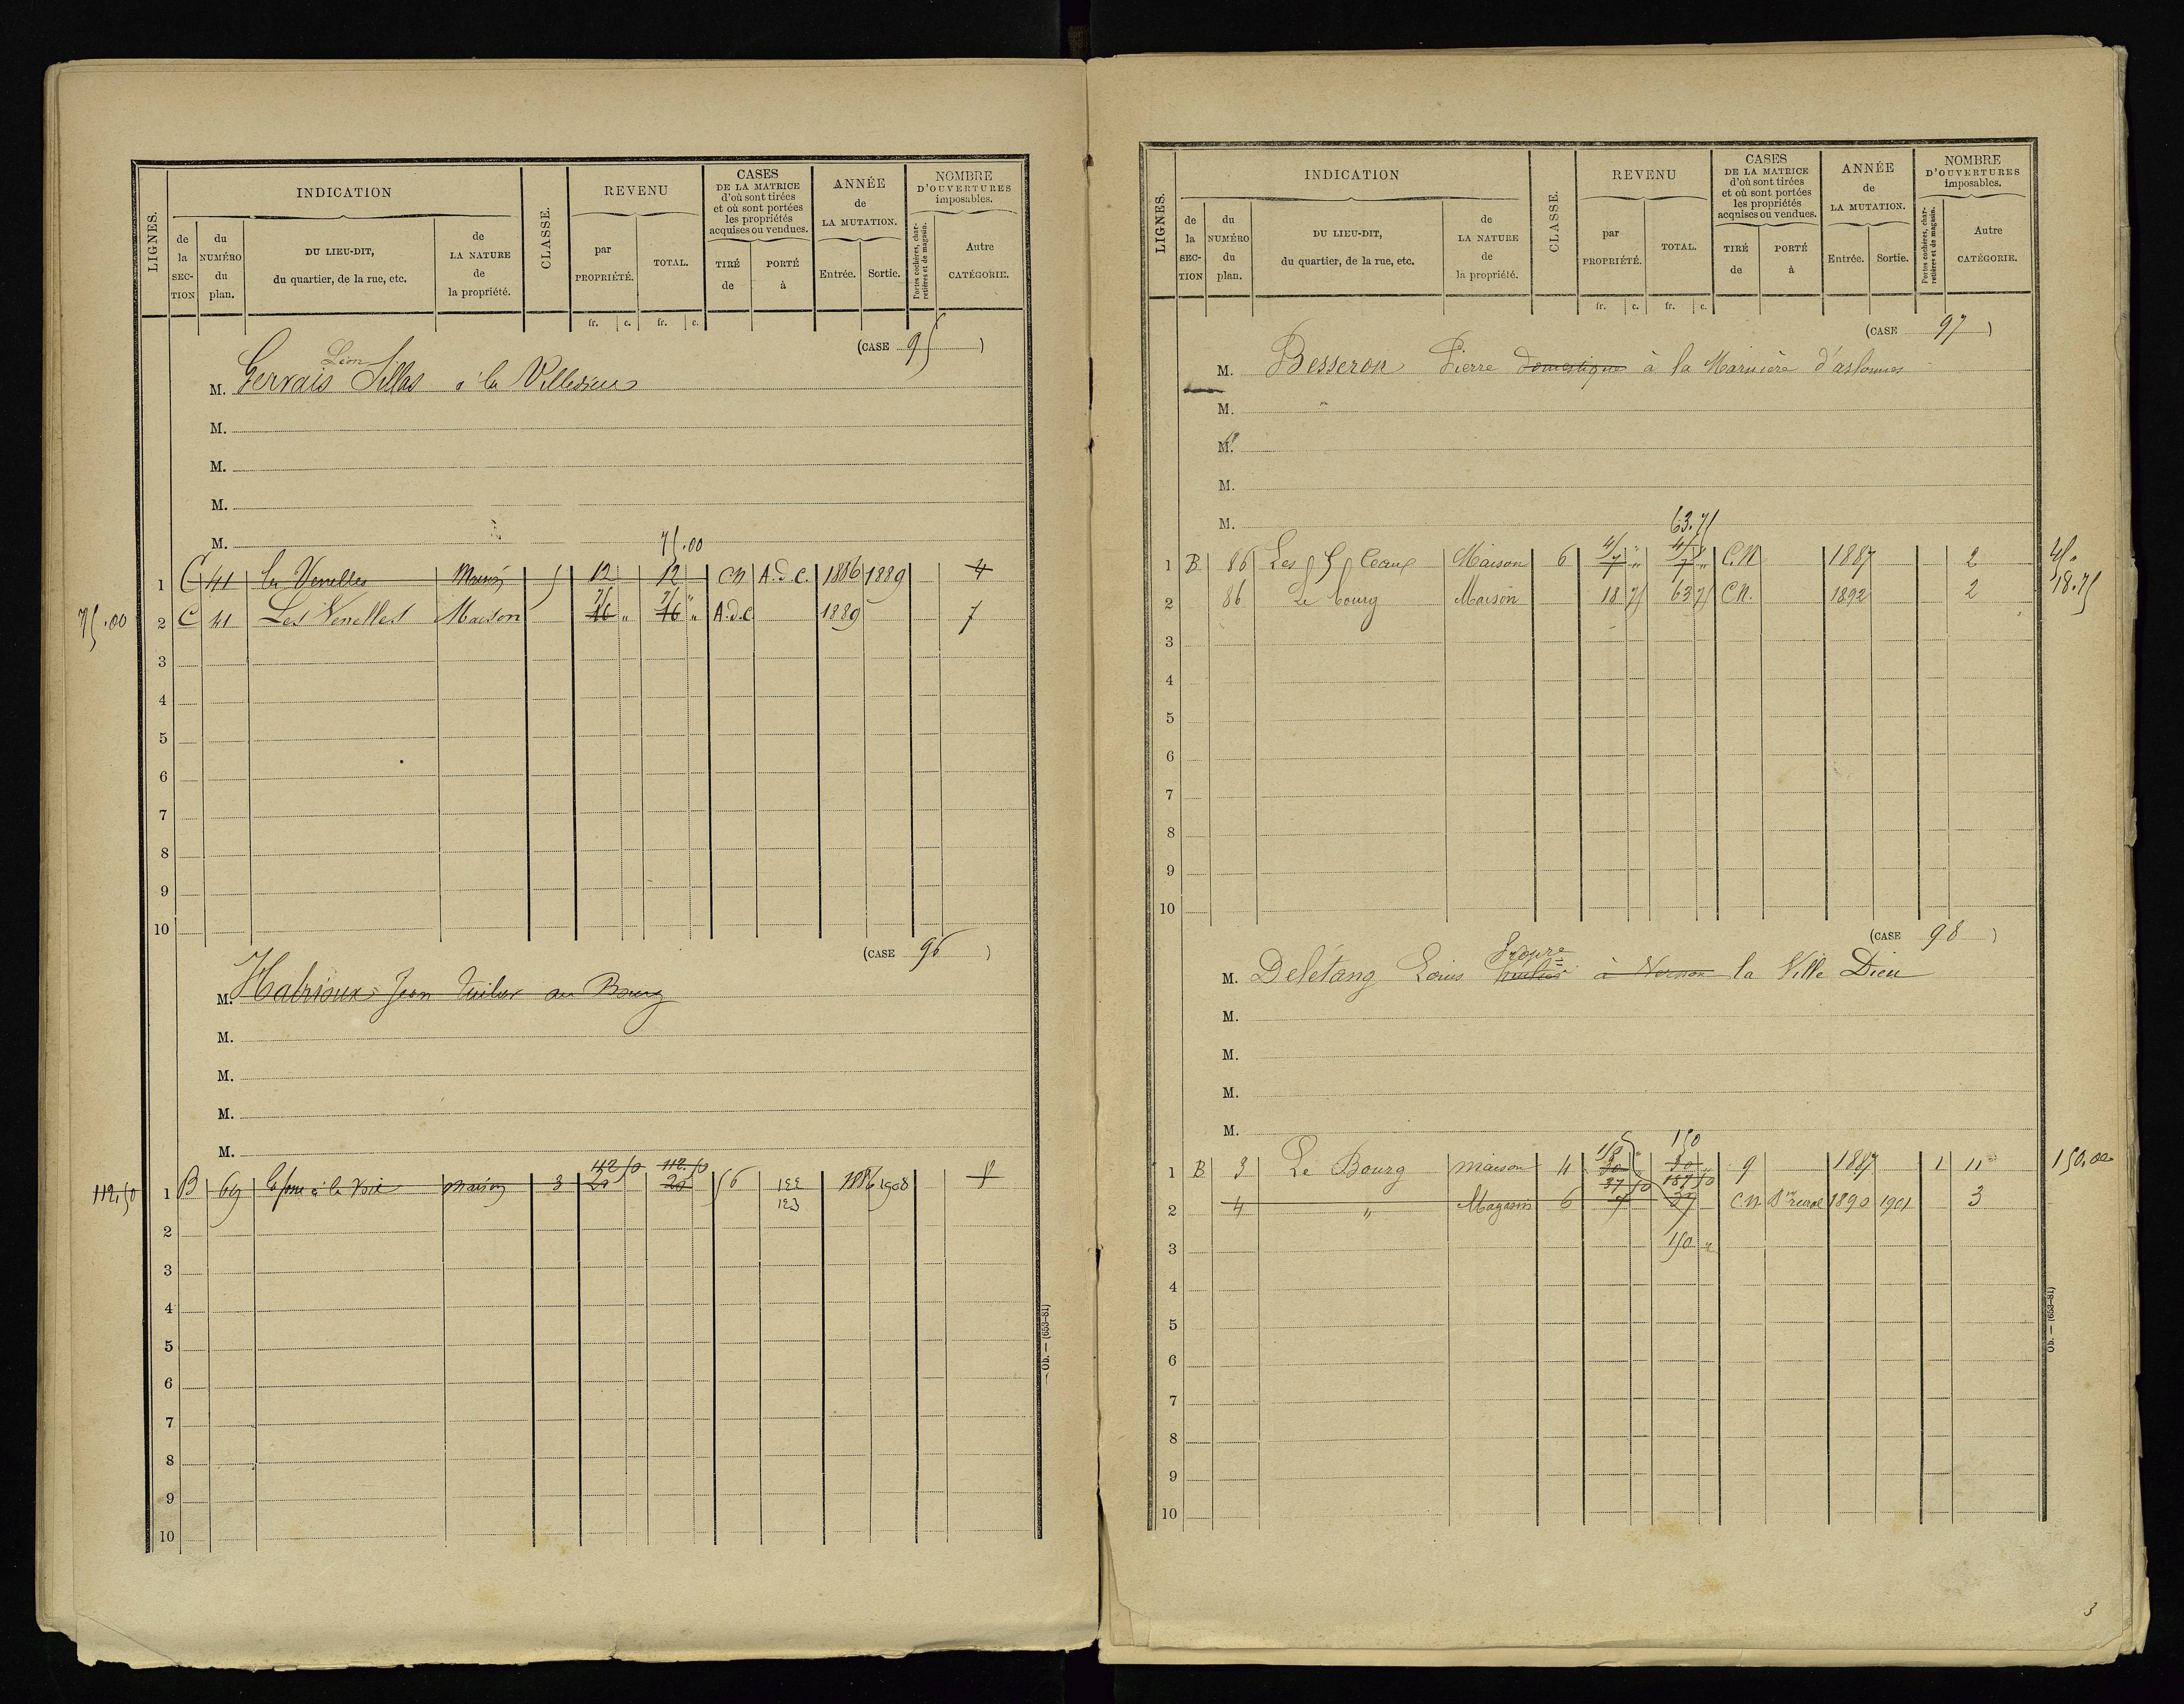 LIGNES.
INDICATION
de la SECTION
du NUMÉRO du plan.
DU LIEU-DIT, du quartier, de la rue, etc.
de LA NATURE de la propriété.
CLASSE.
REVENU
par PROPRIÉTÉ.
TOTAL.
CASES DE LA MATRICE d'où sont tirées et où sont portées les propriétés acquises ou vendues.
TIRÉ de
PORTÉ à
ANNÉE de LA MUTATION.
Entrée.
Sortie.
NOMBRE D'OUVERTURES imposables.
Portes cochères, charretières et de magasin.
Autre CATÉGORIE.
fr. c. fr. c.
(CASE 95)
Léon
M. Gervais Sillas à la Villedieu
M.
M.
M.
M.
75.00
1 C 41 les Venelles Maison 5 12 12 CN A.d.C. 1886 1889 4
75 75
75.00 2 C 41 Les Venelles Maison 16 " 16 " A.d.C 1889 7
3
4
5
6
7
8
9
10
(CASE 96)
M. Jean au Bourg
M.
M.
M.
M.
112 50 112.50
112,50 1 B 69 maison 3 20 20 56 122 1886 1908
123
2
3
4
5
6
7
8
9
10
Ob. — (653-81)
LIGNES.
INDICATION
de la SECTION
du NUMÉRO du plan.
DU LIEU-DIT, du quartier, de la rue, etc.
de LA NATURE de la propriété.
CLASSE.
REVENU
par PROPRIÉTÉ.
TOTAL.
CASES DE LA MATRICE d'où sont tirées et où sont portées les propriétés acquises ou vendues.
TIRÉ de
PORTÉ à
ANNÉE de LA MUTATION.
Entrée.
Sortie.
NOMBRE D'OUVERTURES imposables.
Portes cochères, charretières et de magasin.
Autre CATÉGORIE.
fr. c. fr. c.
(CASE 97)
M. Besseron Pierre domestique à la Marnière d'aslonnes
M.
M.
M.
M.
63.75
45 " 45 "
1 B 86 Maison 6 7 " 7 " C.N 1887 2 45 "
2 86 Le bourg Maison 18 75 63 75 C.N. 1892 2 18.75
3
4
5
6
7
8
9
10
(CASE 98)
M. Delétang Louis à Vernon la Ville Dieu
M.
M.
M.
M.
150
1 B 3 Le Bourg maison 4 30 30 9 1887 1 11 150,00
37 50 187 50
2 4 " Magasin 6 7 37 C.N. 1890 1901 3
3 150 "
4
5
6
7
8
9
10
Ob. — (653-81)
3